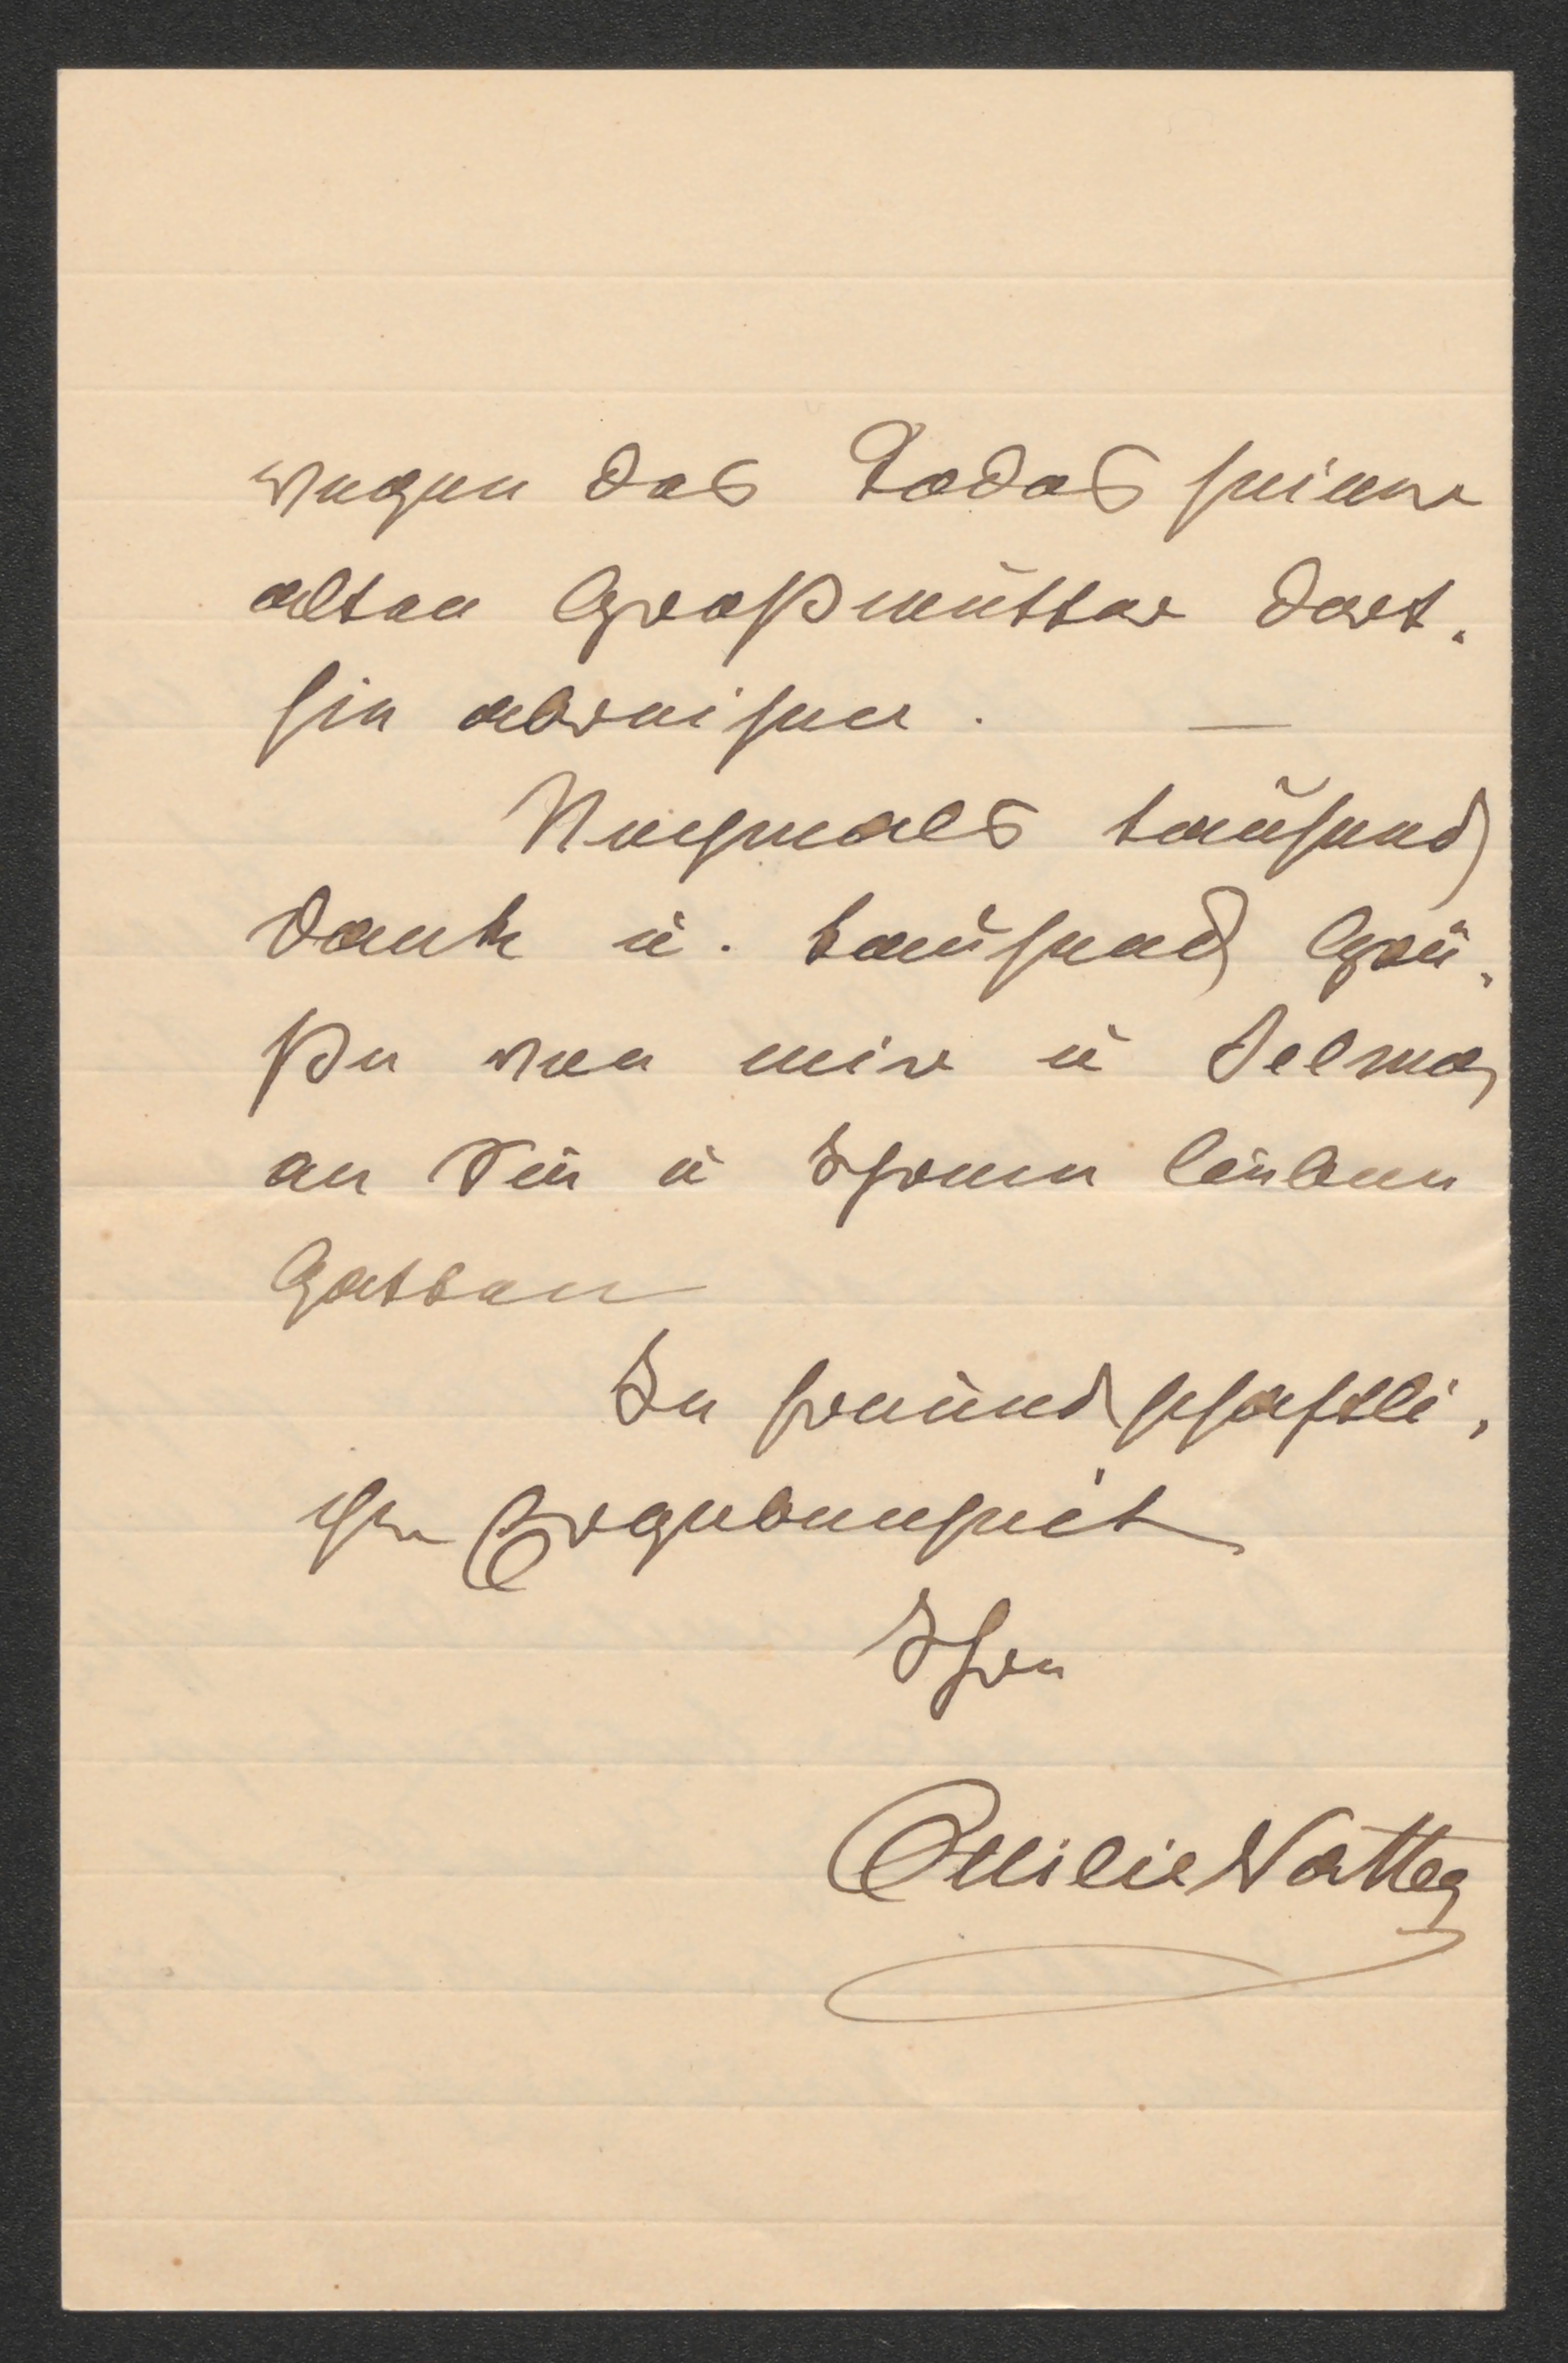 wegen des Todes seiner
alten Großmutter dort-
hin abreisen. —
Nochmals tausend
Dank u. tausend Grü-
ße von mir u Selma
an Sie u Ihren lieben
Gatten
In freundschaftli-
cher Ergebenheit
Ihre
Emilie